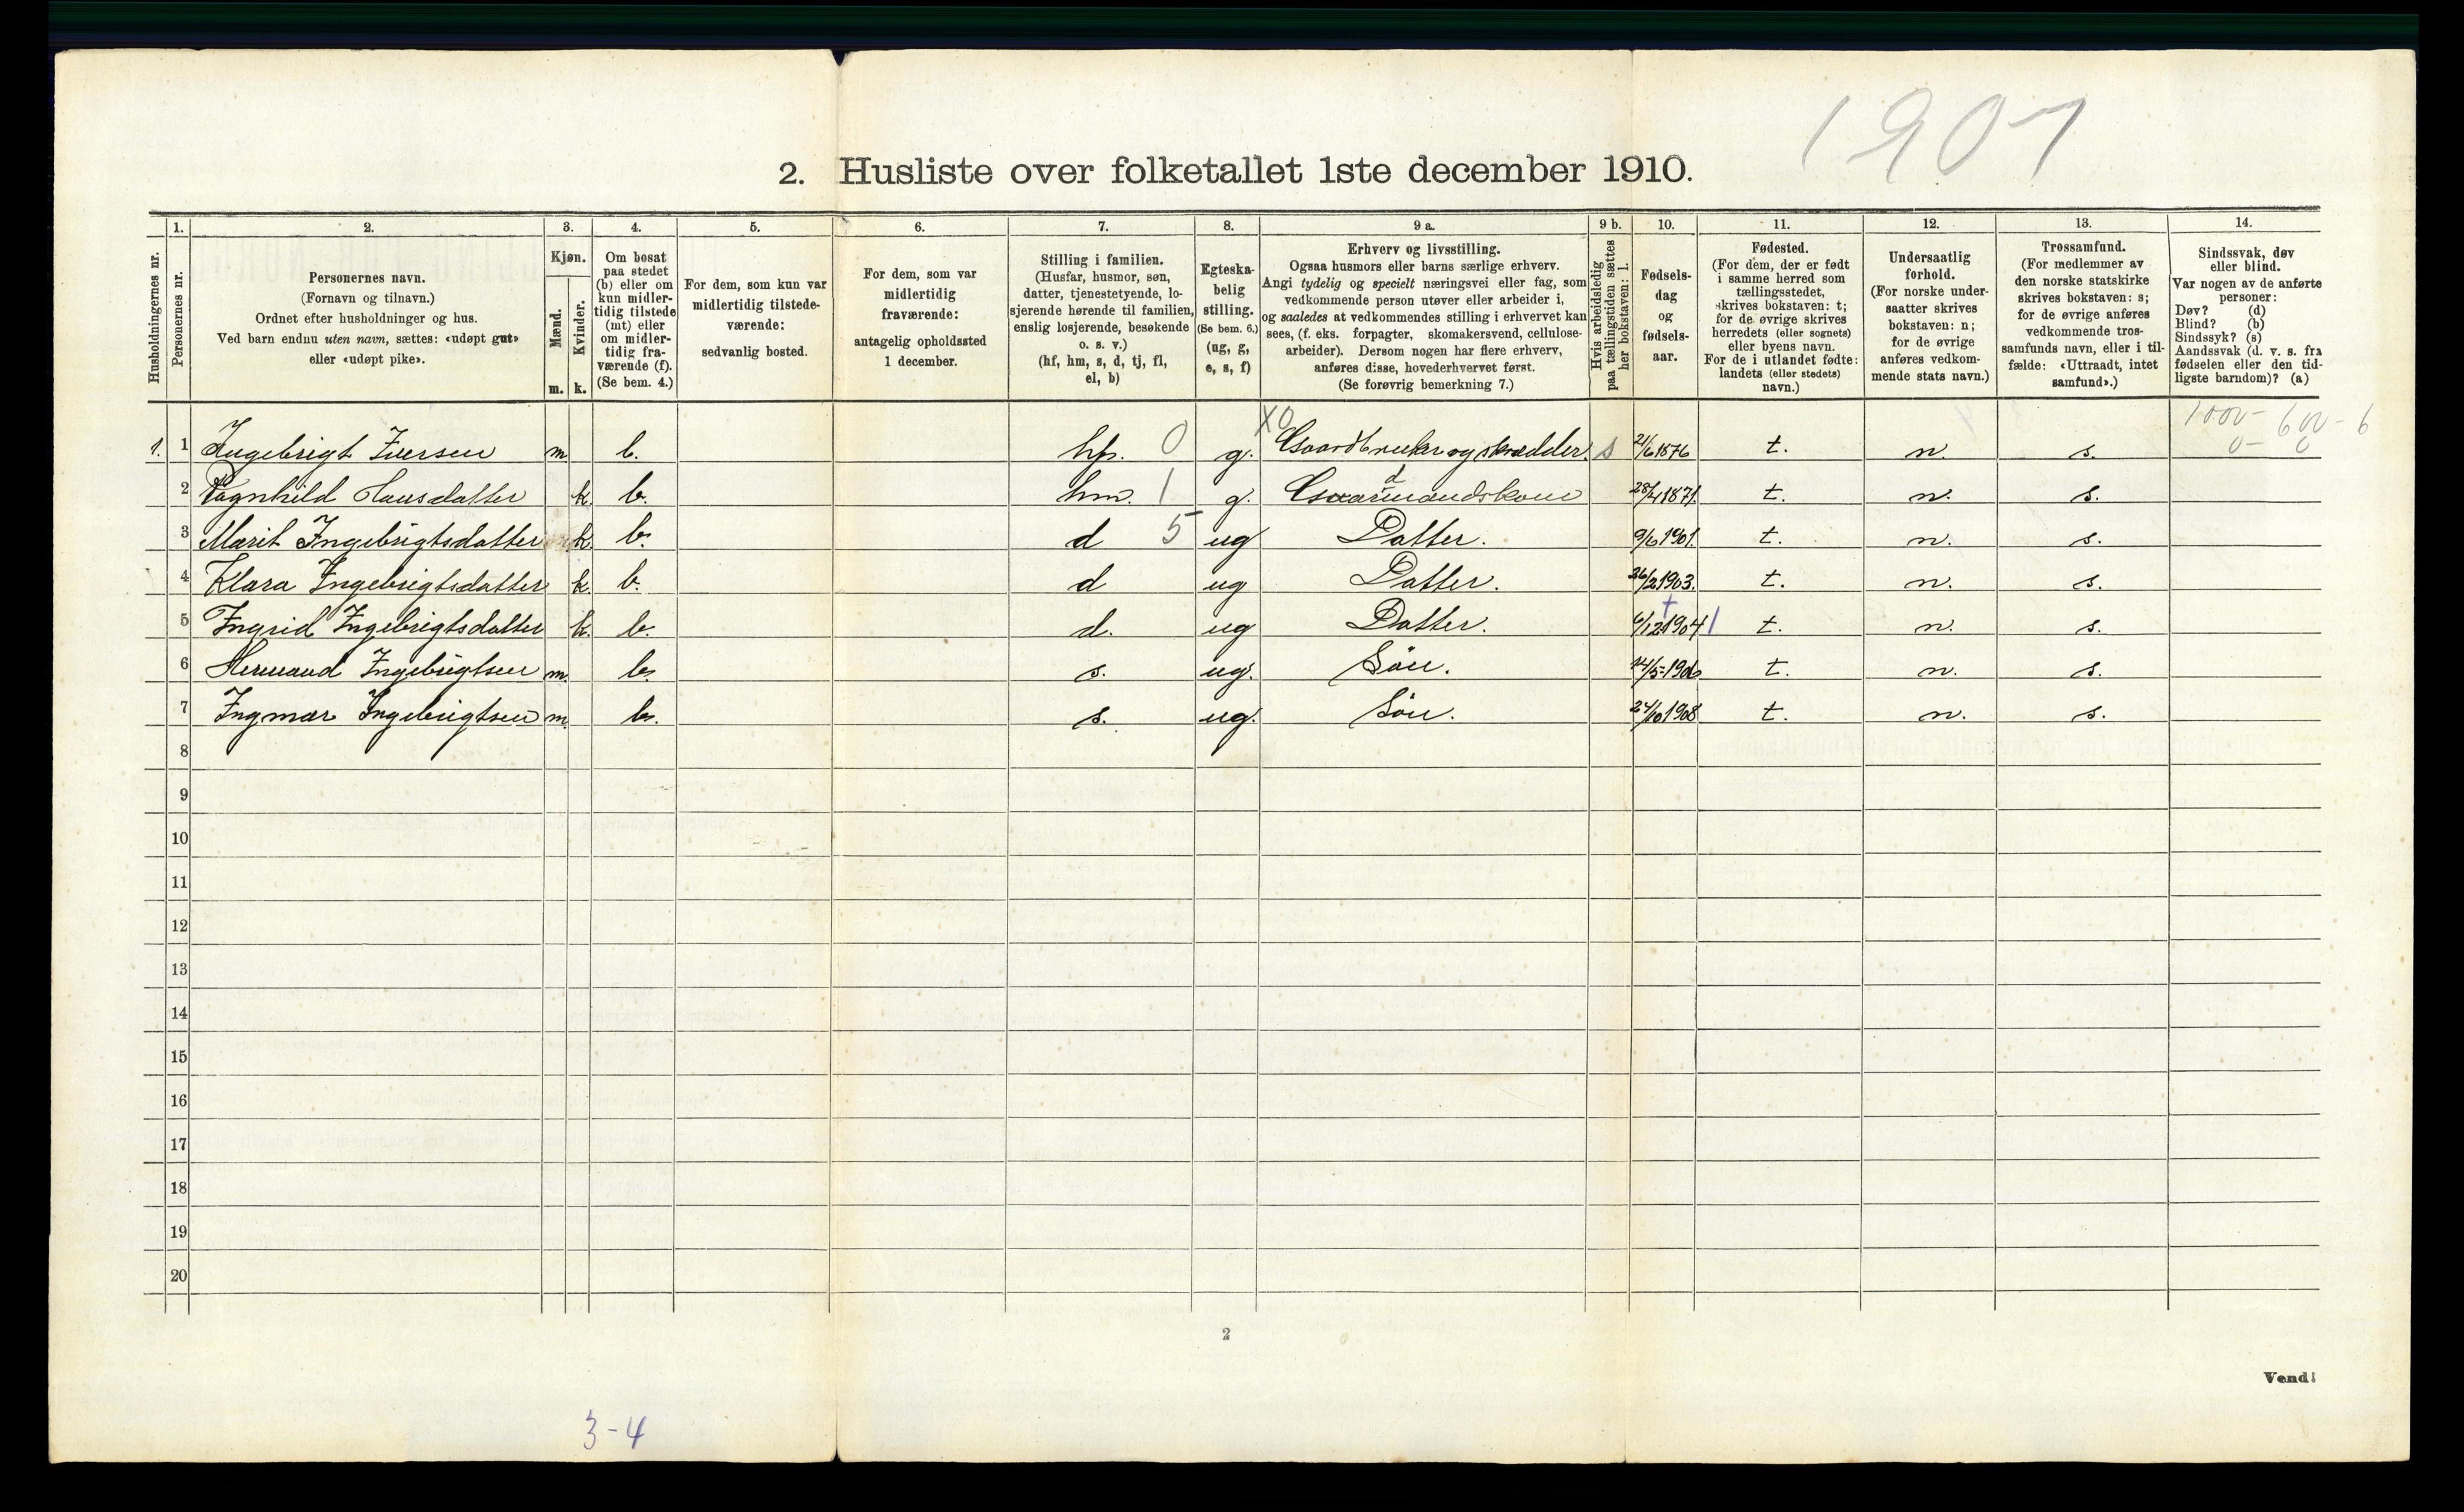 1907
2. Husliste over folketallet 1ste december 1910.
Husholdningernes nr.
1.
Personernes nr.
2.
Personernes navn.
(Fornavn og tilnavn.)
Ordnet efter husholdninger og hus.
Ved barn endnu uten navn, sættes: «udøpt gut»
eller «udøpt pike».
3.
Kjøn.
Mænd.
Kvinder.
m. k.
4.
Om bosat
paa stedet
(b) eller om
kun midler-
tidig tilstede
(mt) eller
om midler-
tidig fra-
værende (f).
(Se bem. 4.)
5.
For dem, som kun var
midlertidig tilstede-
værende:
sedvanlig bosted.
6.
For dem, som var
midlertidig
fraværende:
antagelig opholdssted
1 december.
7.
Stilling i familien.
(Husfar, husmor, søn,
datter, tjenestetyende, lo-
sjerende hørende til familien,
enslig losjerende, besøkende
o. s. v.)
(hf, hm, s, d, tj, fl,
el, b)
8.
Egteska-
belig
stilling.
(Se bem. 6.)
(ug, g,
e, s, f)
9 a.
Erhverv og livsstilling.
Ogsaa husmors eller barns særlige erhverv.
Angi tydelig og specielt næringsvei eller fag, som
vedkommende person utøver eller arbeider i,
og saaledes at vedkommendes stilling i erhvervet kan
sees, (f. eks. forpagter, skomakersvend, cellulose-
arbeider). Dersom nogen har flere erhverv,
anføres disse, hovederhvervet først.
(Se forøvrig bemerkning 7.)
9 b.
Hvis arbeidsledig
paa tællingstiden sættes
her bokstaven: l.
10.
Fødsels-
dag
og
fødsels-
aar.
11.
Fødested.
(For dem, der er født
i samme herred som
tællingsstedet,
skrives bokstaven: t;
for de øvrige skrives
herredets (eller sognets)
eller byens navn.
For de i utlandet fødte:
landets (eller stedets)
navn.)
12.
Undersaatlig
forhold.
(For norske under-
saatter skrives
bokstaven: n;
for de øvrige
anføres vedkom-
mende stats navn.)
13.
Trossamfund.
(For medlemmer av
den norske statskirke
skrives bokstaven: s;
for de øvrige anføres
vedkommende tros-
samfunds navn, eller i til-
fælde: «Uttraadt, intet
samfund».)
14.
Sindssvak, døv
eller blind.
Var nogen av de anførte
personer:
Døv? (d)
Blind? (b)
Sindssyk? (s)
Aandssvak (d. v. s. fra
fødselen eller den tid-
ligste barndom)? (a)
X0 1000- 600-6
0- 0
1. 1 Ingebrigt Iversen m b. hf. 0 g. Gaardbruker og skrædder. s 21/6 1876 t. n. s.
2 Ragnhild Hansdatter k. b. hm. 1 g. Gaardmandskone 28/4 1871. t. n. s.
3 Marit Ingebrigtsdatter k. b. d 5 ug Datter. 9/6 1901. t. n. s.
4 Klara Ingebrigtsdatter k. b. d ug Datter. 26/2 1903. t. n. s.
5 Ingrid Ingebrigtsdatter k. b. d. ug Datter. 6/12 1904 t. n. s.
6 Hermand Ingebrigtsen m. b. s. ug. Søn. 14/5-1906 t. n. s.
7 Ingmar Ingebrigtsen m b. s. ug. Søn. 24/10 1908 t. n. s.
8
9
10
11
12
13
14
15
16
17
18
19
20
2
Vend!
3-4